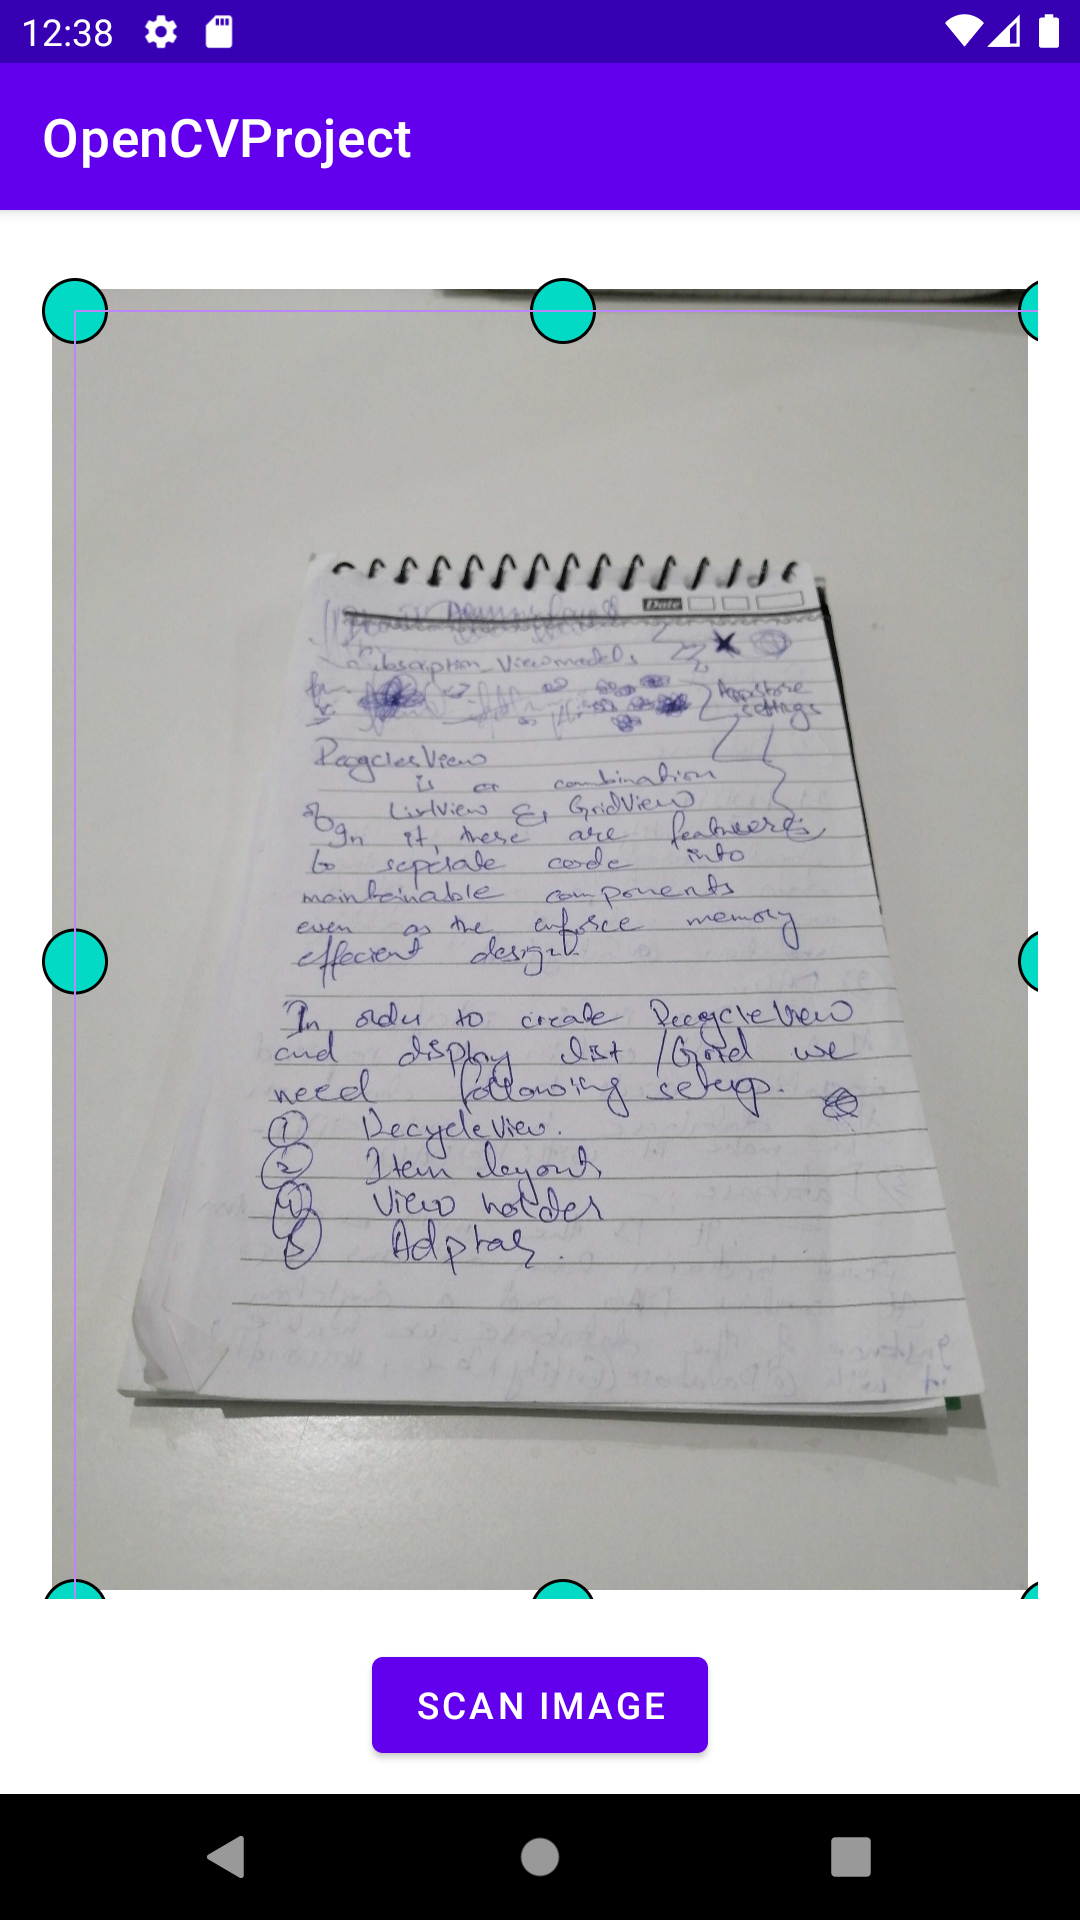 12:38
OpenCVProject
Date
Subscription_Viewmodels
Appstore
settings
RecyclerView
is a combination
of ListView & GridView
In it, these are features
to seperate code into
maintainable components
even as the enforce memory
effecient design.
In order to create RecycleView
and display list / Grid we
need following setup.
① RecycleView.
② Item layout
④ View holder
5 Adptar.
SCAN IMAGE